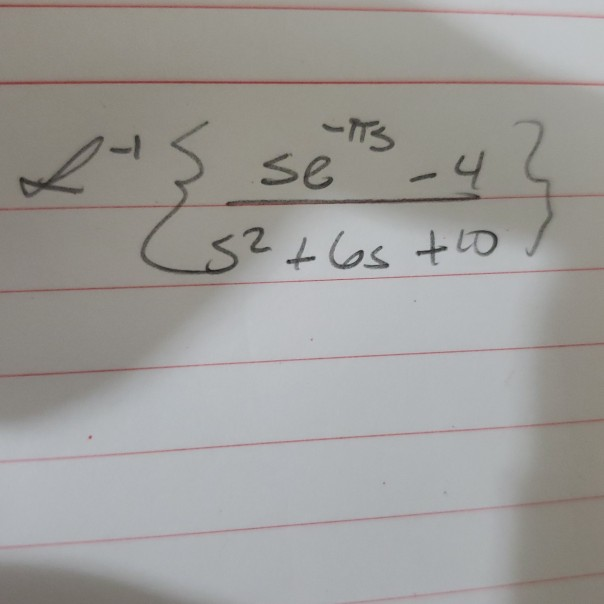 ℒ⁻¹ { (se^(-πs) - 4) / (s² + 6s + 10) }